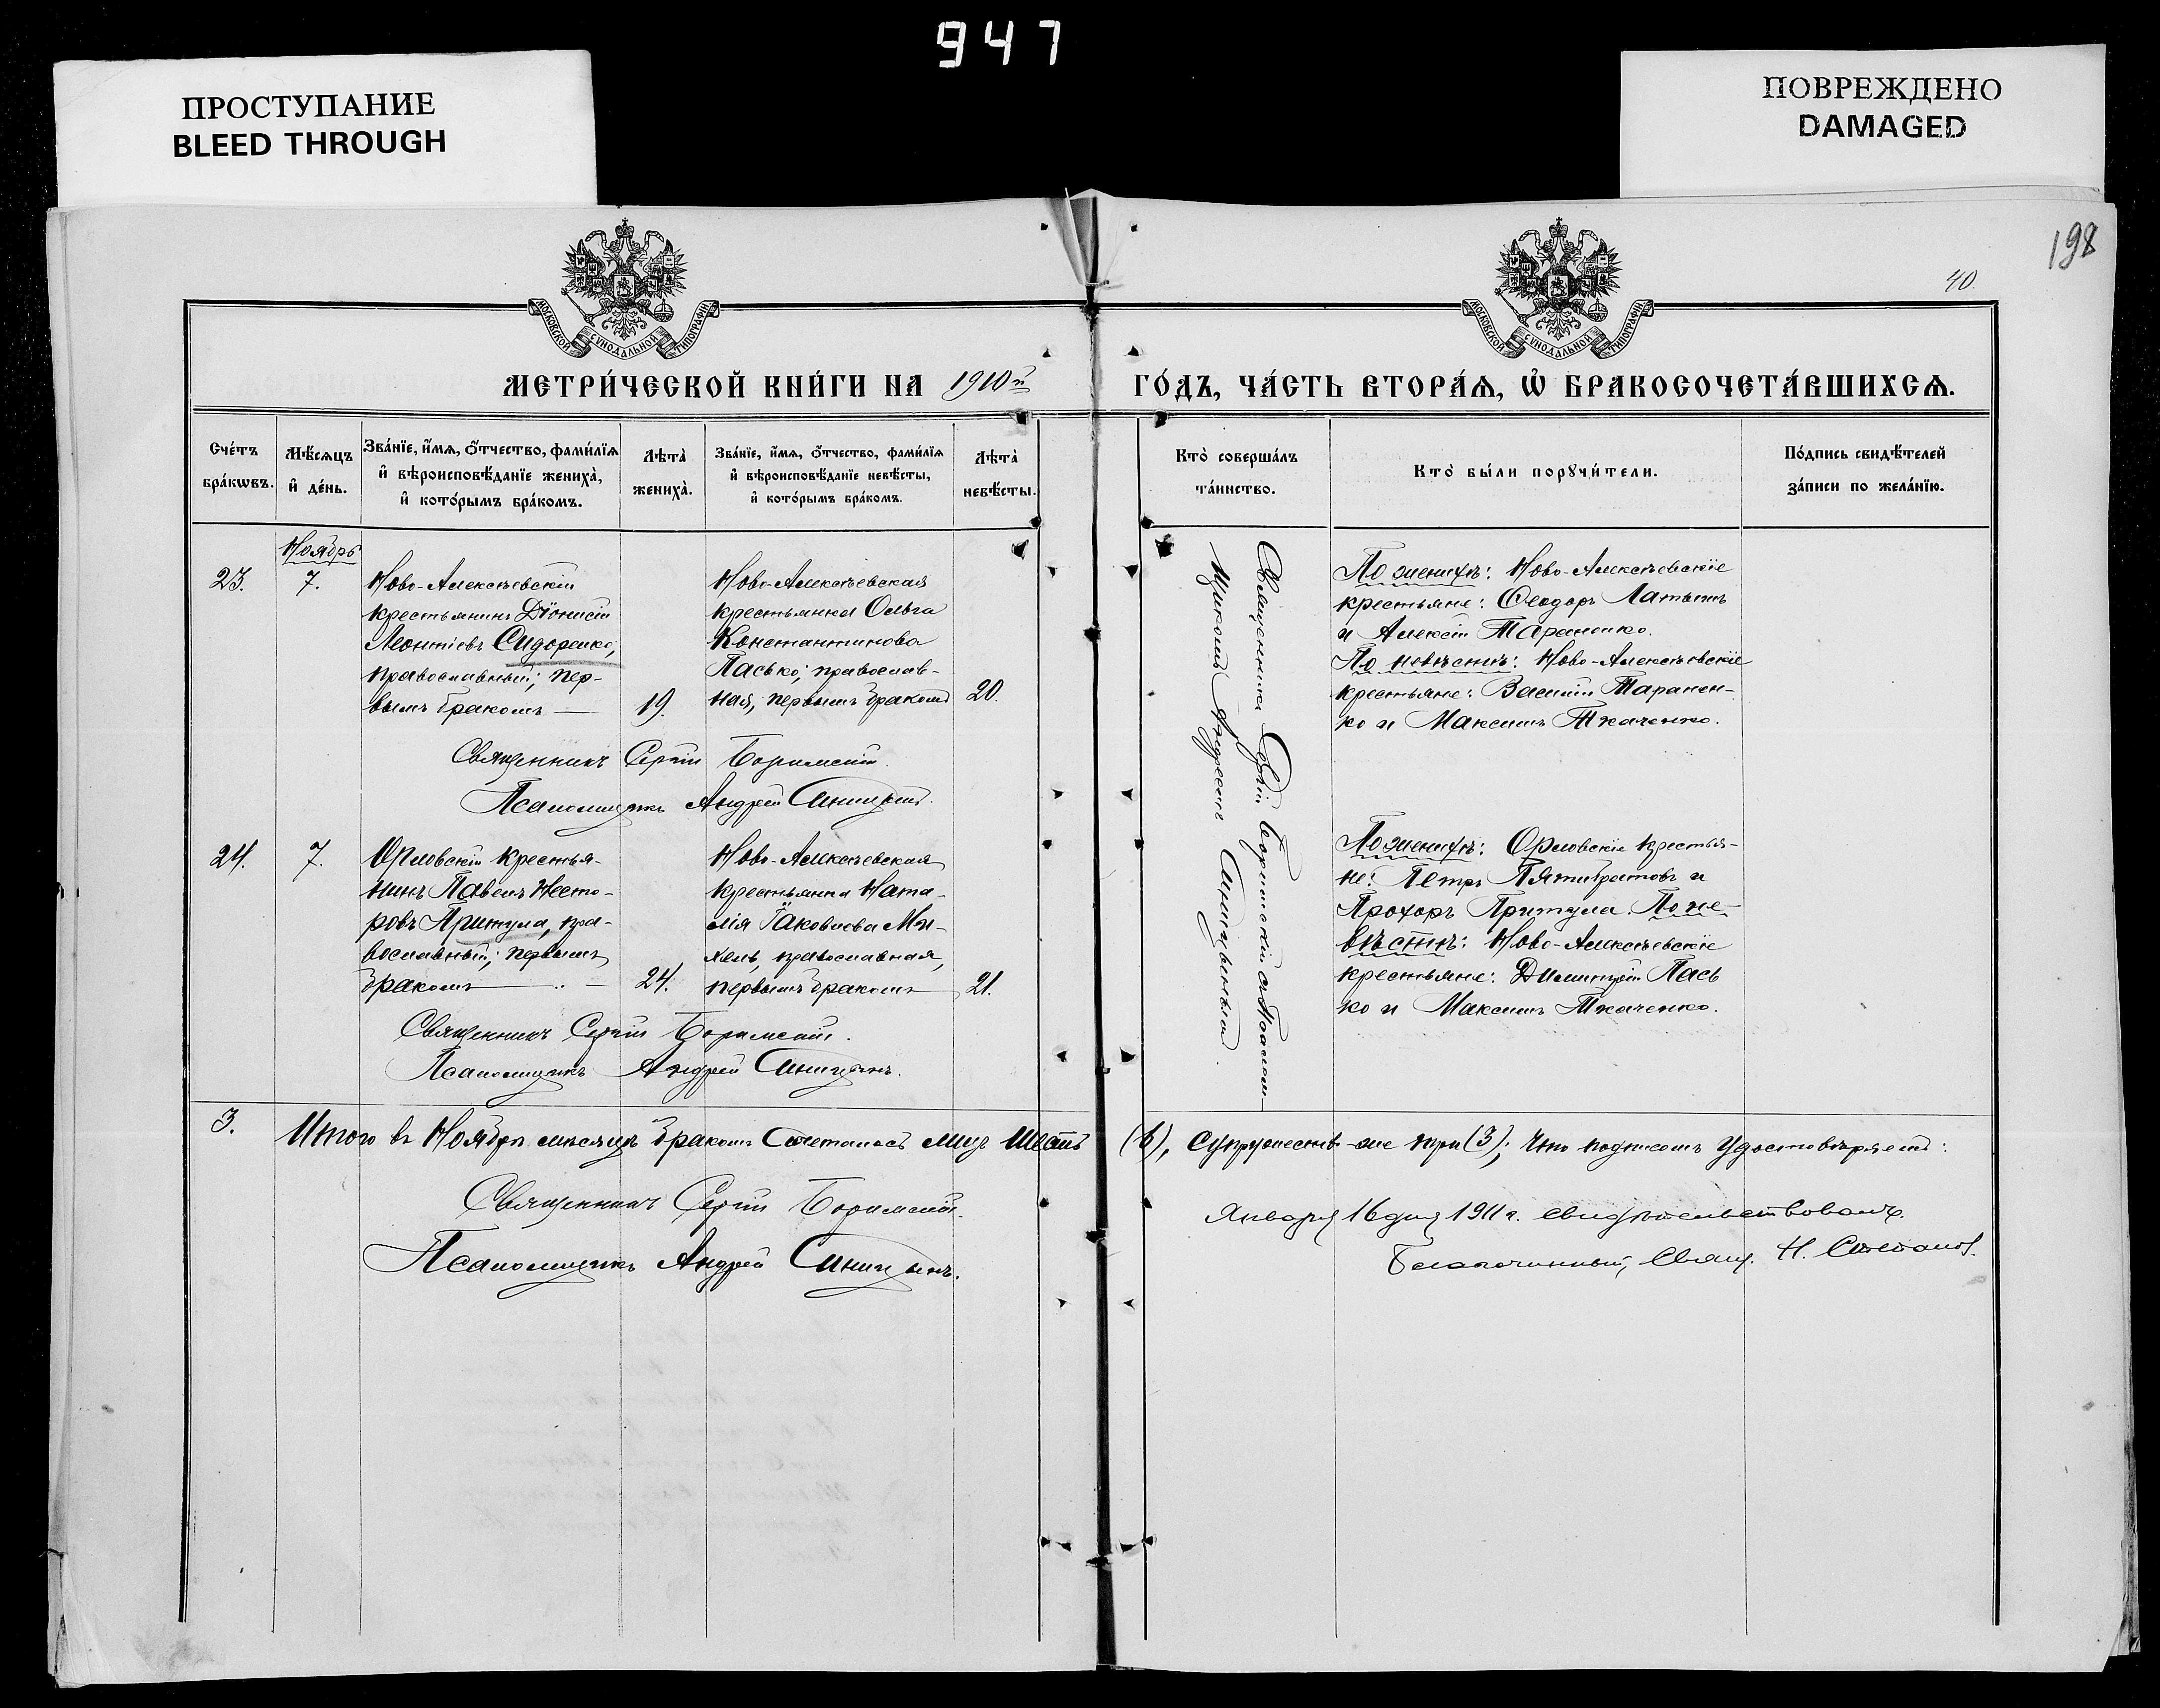 947
ПРОСТУПАНИЕ
BLEED THROUGH
ПОВРЕЖДЕНО
DAMAGED
198
40.
МОСКОВСКОЙ СѴНОДАЛЬНОЙ ТИПОГРАФІИ
МОСКОВСКОЙ СѴНОДАЛЬНОЙ ТИПОГРАФІИ
МЕТРИ́ЧЕСКОЙ КНИ́ГИ НА 1910й ГО́ДЪ, ЧА́СТЬ ВТОРА́Я, Ѡ҆ БРАКОСОЧЕТА́ВШИХСѦ.
Сче́тъ
бра́кωвъ.
Мѣ́сяцъ
и҆ де́нь.
Зва́нїе, и҆́мя, ѻ҆́тчество, фами́лїя
и҆ вѣроисповѣ́данїе жениха̀,
и҆ кото́рымъ бра́комъ.
Лѣта̀
жениха̀.
Зва́нїе, и҆́мя, ѻ҆́тчество, фами́лїя
и҆ вѣроисповѣ́данїе невѣ́сты,
и҆ кото́рымъ бра́комъ.
Лѣта̀
невѣ́сты.
Кто̀ соверша́лъ
та́инство.
Кто̀ бы́ли порꙋчи́тели.
По́дпись свидѣ́телей
за́писи по жела́нїю.
Ноябрь
23.
7.
Ново-Алексѣевскій
крестьянинъ Діонисій
Леонтіевъ Сидоренко,
православный; пер-
вымъ бракомъ —
19.
Ново-Алексѣевская
крестьянка Ольга
Константинова
Пасько; православ-
ная, первымъ бракомъ
20.
Священника Сергій Боримскій съ Псалом-
щикомъ Андреемъ Синицынымъ.
По женихѣ: Ново-Алексѣевскіе
крестьяне: Ѳеодоръ Латышъ
и Алексій Тараненко.
По невѣстѣ: Ново-Алексѣевскіе
крестьяне: Василій Таранен-
ко и Максимъ Ткаченко.
Священникъ Сергій Боримскій.
Псаломщикъ Андрей Синицынъ.
24.
7.
Орловскій крестья-
нинъ Павелъ Несто-
ровъ Притула, пра-
вославный; первымъ
бракомъ —
24.
Ново-Алексѣевская
крестьянка Ната-
лія Іаковлева
православная,
первымъ бракомъ
21.
По женихѣ: Орловскіе крестья-
не: Петръ Пятибратовъ и
Прохоръ Притула. По не-
вѣстѣ: Ново-Алексѣевскіе
крестьяне: Димитрій Пась
ко и Максимъ Ткаченко.
Священникъ Сергій Боримскій.
Псаломщикъ Андрей Синицынъ.
3.
Итого въ Ноябрѣ мѣсяцѣ бракомъ сочеталось лицъ шесть (6), супружествъ-же три (3); Что подписомъ удостовѣряемъ:
Священникъ Сергій Боримскій.
Псаломщикъ Андрей Синицынъ.
Января 16 дня 1911 г. свидѣтельствовалъ.
Благочинный, Свящ. Н. Степановъ.